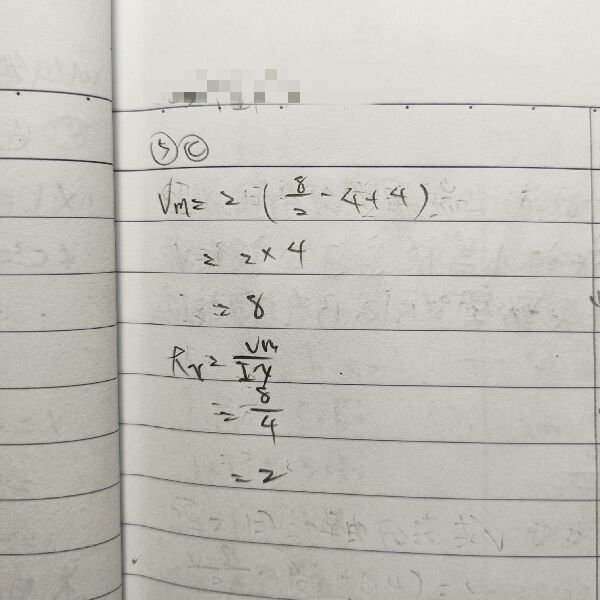 ⑤ Ⓒ
Vm = 2 (8/2 - 4 + 4)
= 2 × 4
= 8
Rx = Vm/Ix
= 8/4
= 2